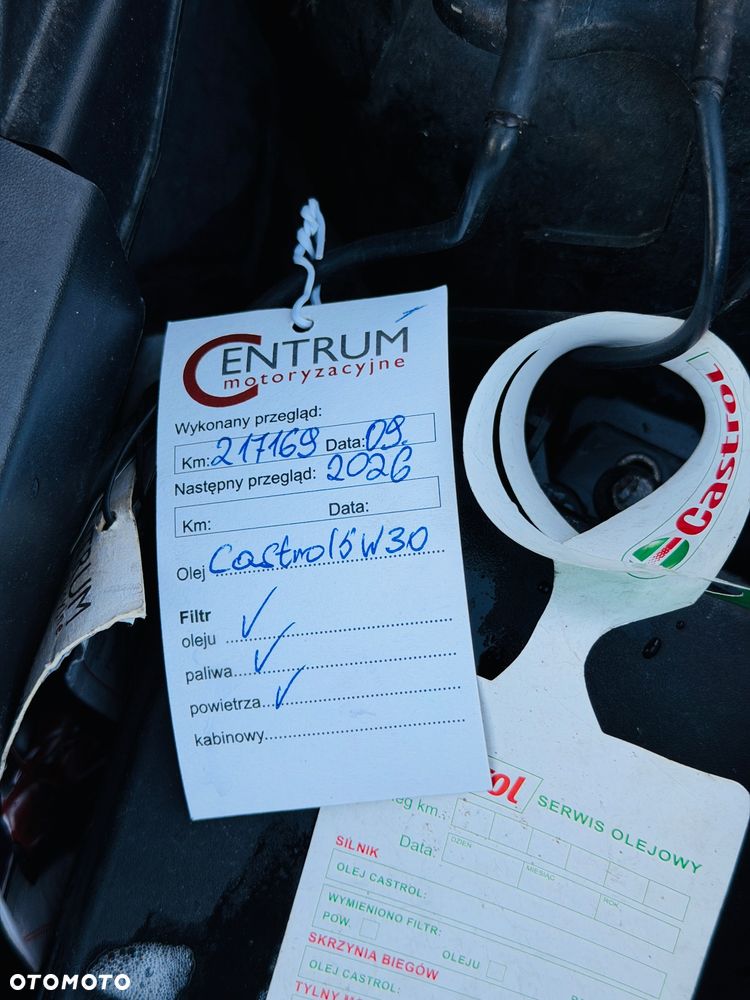 CENTRUM
motoryzacyjne
Wykonany przegląd:
Km: 217169 Data: 09.
Następny przegląd: 2026
Km: Data:
Olej Castrol 5W30
Filtr
oleju
paliwa
powietrza
kabinowy
Castrol
SERWIS OLEJOWY
km.:
Data:
DZIEŃ MIESIĄC ROK
SILNIK
OLEJ CASTROL:
WYMIENIONO FILTR:
POW. OLEJU
SKRZYNIA BIEGÓW
OLEJ CASTROL:
TYLNY
OTOMOTO